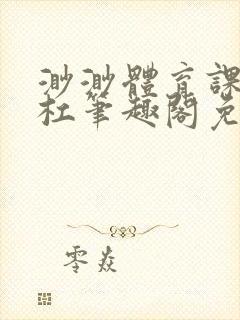 渺渺體育課
杜筆趣閣免
零焱